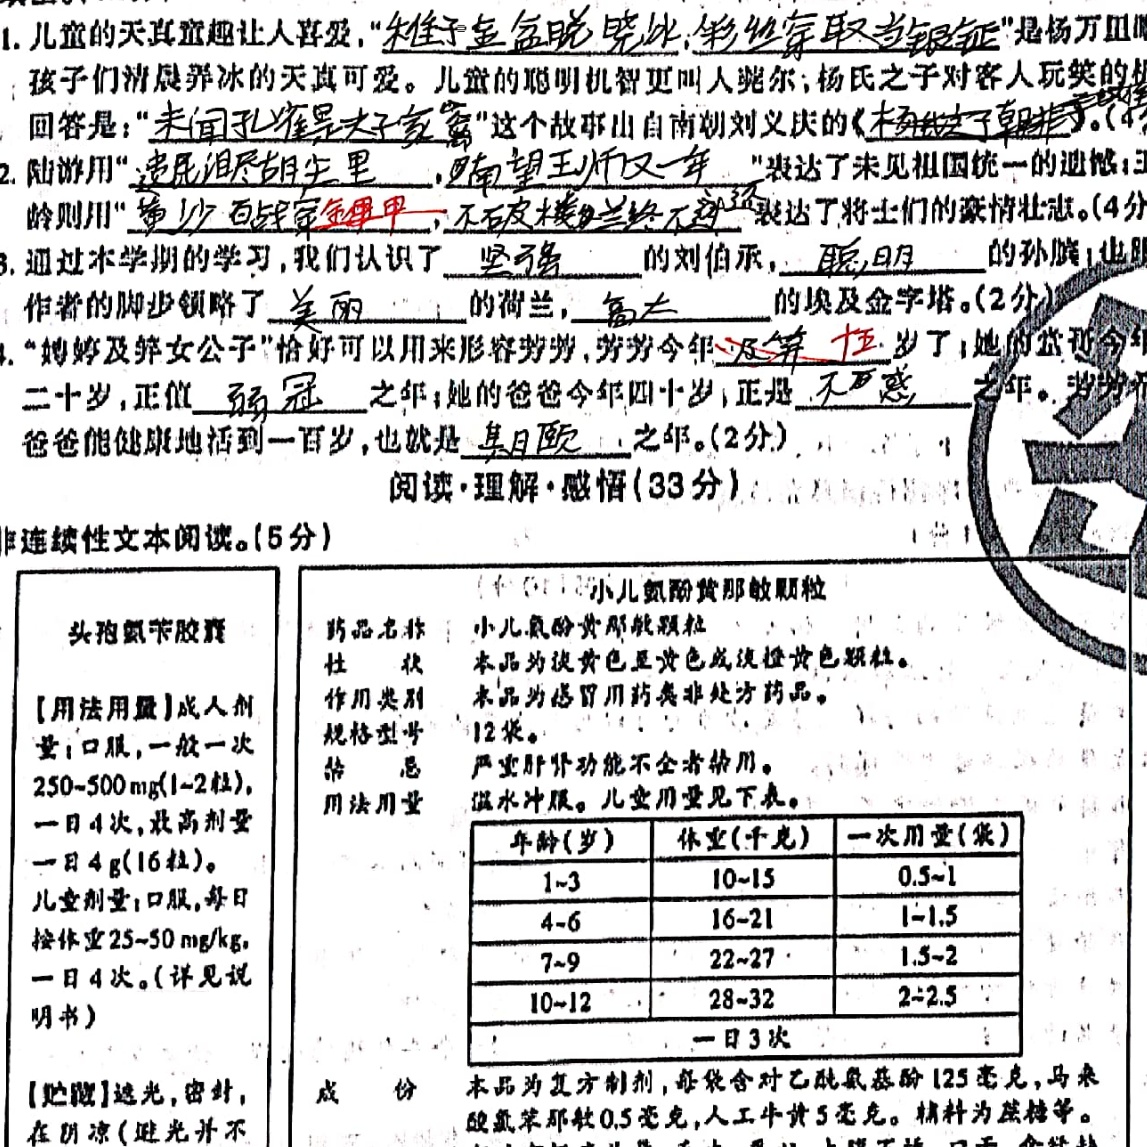 1. 儿童的天真童趣让人喜爱，“稚子金盆脱晓冰，彩丝穿取当银钲”是杨万里
孩子们清晨弄冰的天真可爱。儿童的聪明机智更叫人莞尔；杨氏之子对客人玩笑的
回答是：“未闻孔雀是夫子家禽”这个故事出自南朝刘义庆的《》。(4
2. 陆游用“遗民泪尽胡尘里，南望王师又一年”表达了未见祖国统一的遗憾；王
龄则用“黄沙百战穿金甲，不破楼兰终不还”表达了将士们的豪情壮志。(4分
3. 通过本学期的学习，我们认识了 坚强 的刘伯承， 聪明 的孙膑；也跟
作者的脚步领略了 美丽 的荷兰， 高大 的埃及金字塔。(2分)
“娉婷及笄女公子”恰好可以用来形容芳芳，芳芳今年 及笄 岁了；她的哥哥今年
二十岁，正值 弱冠 之年；她的爸爸今年四十岁，正是 不惑 之年。芳芳
爸爸能健康地活到一百岁，也就是 期颐 之年。(2分)
阅读·理解·感悟(33分)
非连续性文本阅读。(5分)
头孢氨苄胶囊
【用法用量】成人剂
量：口服，一般一次
250~500mg(1~2粒)，
一日4次，最高剂量
一日4g(16粒)。
儿童剂量：口服，每日
按体重25~50mg/kg，
一日4次。(详见说
明书)
【贮藏】遮光，密封，
在阴凉(避光并不
小儿氨酚黄那敏颗粒
药品名称 小儿氨酚黄那敏颗粒
性状 本品为淡黄色至黄色或淡橙黄色颗粒。
作用类别 本品为感冒用药类非处方药品。
规格型号 12袋。
禁忌 严重肝肾功能不全者禁用。
用法用量 温水冲服。儿童用量见下表。
年龄(岁) 体重(千克) 一次用量(袋)
1~3 10~15 0.5~1
4~6 16~21 1~1.5
7~9 22~27 1.5~2
10~12 28~32 2~2.5
一日3次
成份 本品为复方制剂，每袋含对乙酰氨基酚125毫克，马来
酸氯苯那敏0.5毫克，人工牛黄5毫克。辅料为蔗糖等。